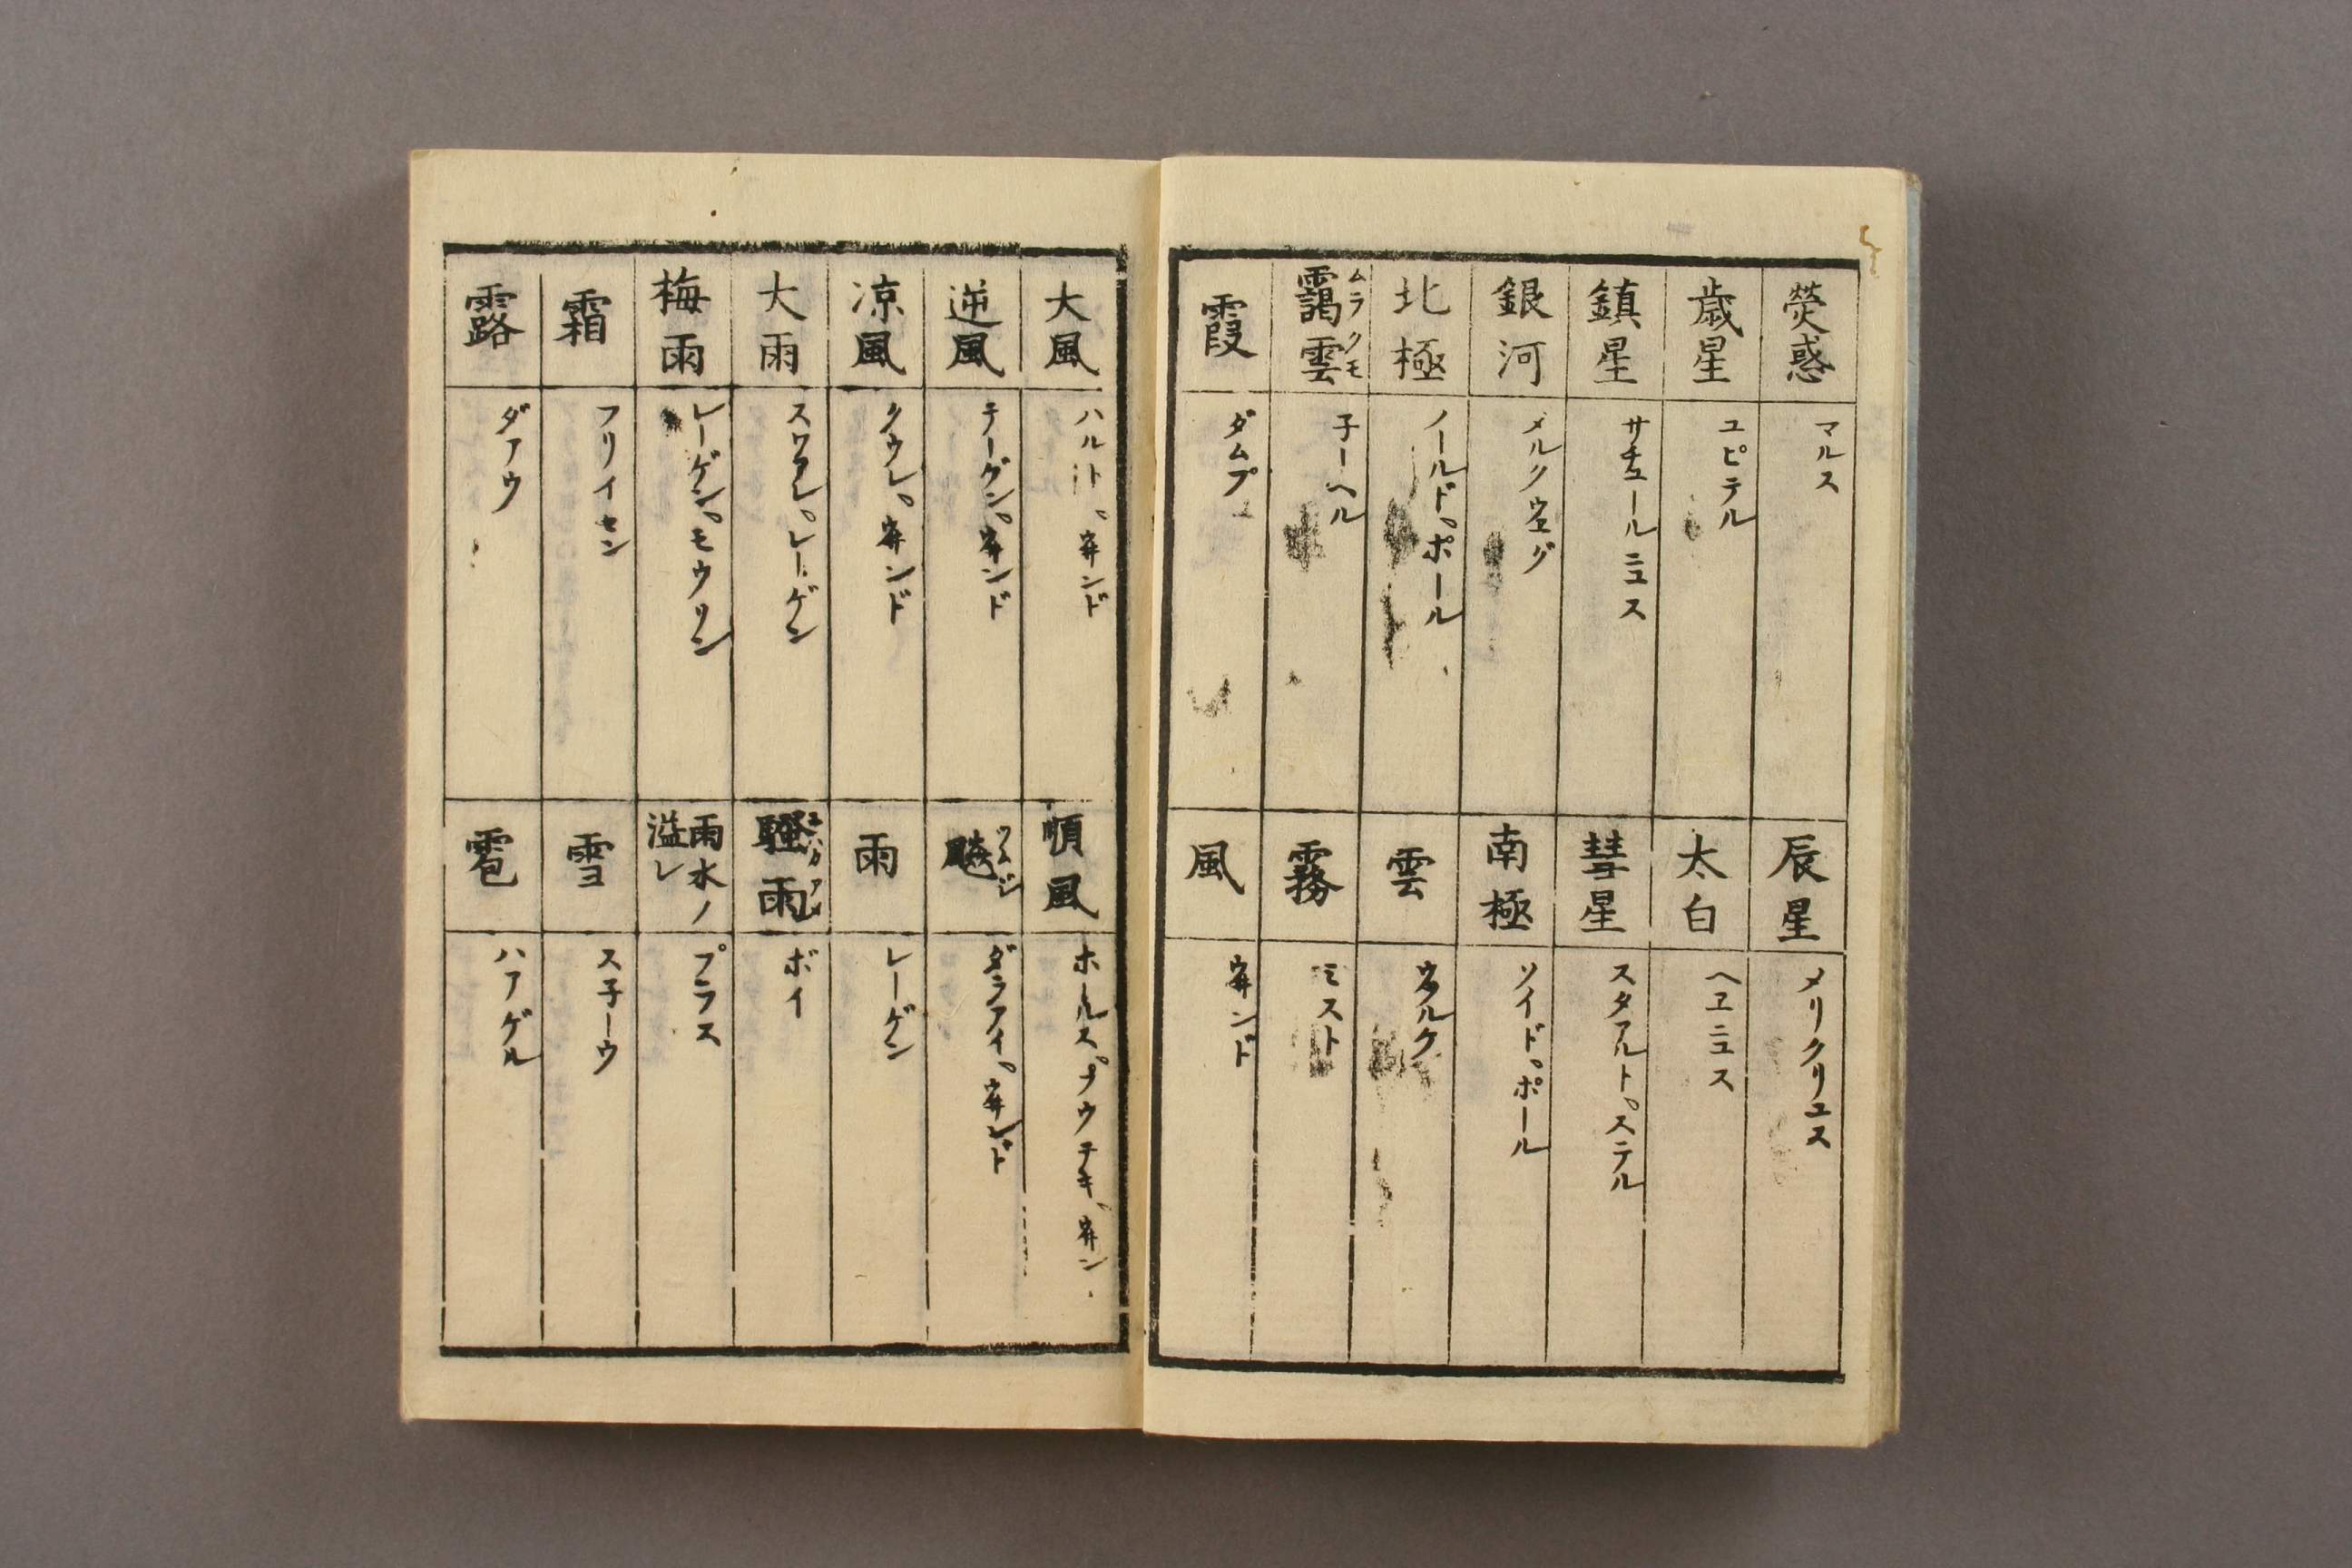 熒惑 マルス
辰星 メリクリユス
歳星 ユピテル
太白 ヘヱニユス
鎮星 サチユールニユス
彗星 スタアルト、ステル
銀河 メルクウエグ
南極 ソイド、ポール
北極 ノールド、ポール
雲 ウヲルク
靄雲 ムラクモ 子ーヘル
霧 ミスト
霞 ダムプ
風 ウ井ンド
大風 ハルト、ウ井ンド
順風 ホールス、プウテキ、ウ井ン
逆風 テーゲン、ウ井ンド
ツムジ ダラアイ、ウ井ンド
凉風 クウレ、ウ井ンド
雨 レーゲン
大雨 スワアレ、レーゲン
騒雨 ニハカアメ ボイ
梅雨 レーゲン、モウリン
雨水ノ溢レ プラス
霜 フリイセン
雪 ス子ーウ
露 ダアウ
雹 ハアゲル